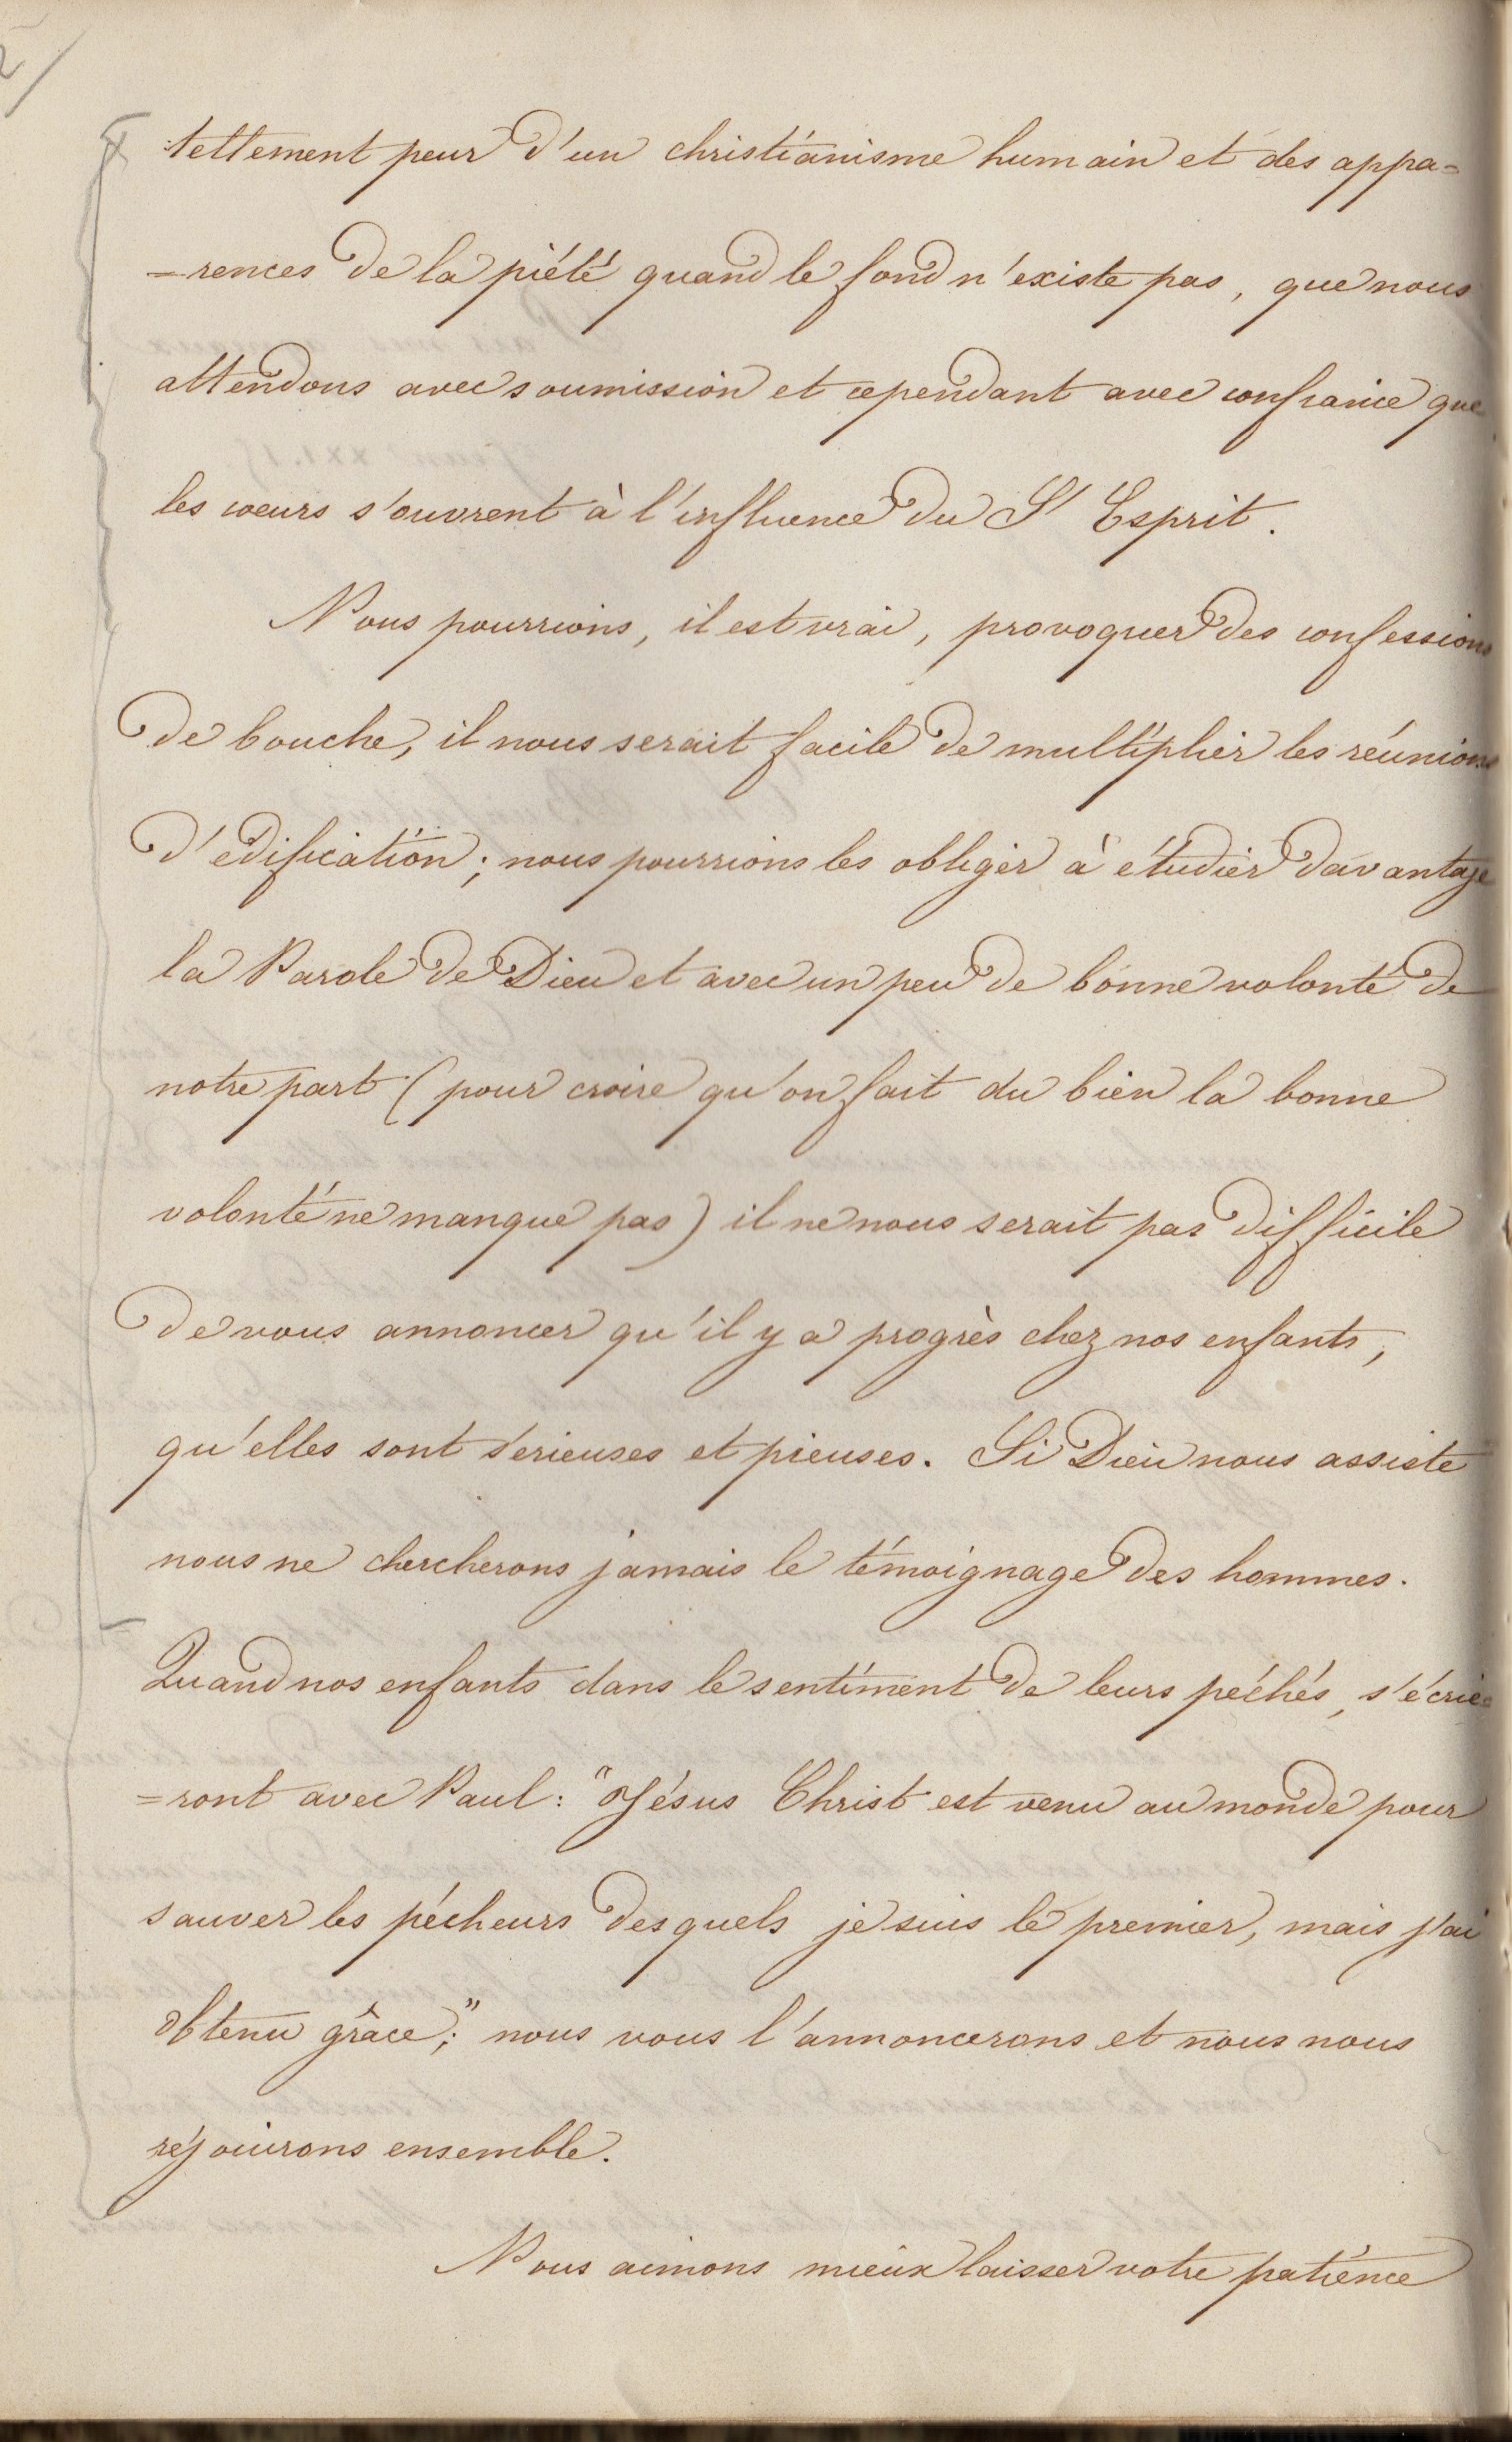 tellement peur d'un christianisme humain et des appa=
=rences de la piété quand le fond n'existe pas, que nous
attendons avec soumission et cependant avec confiance que
les coeurs s'ouvrent à l'influence du St Esprit.
Nous pourrions, il est vrai, provoquer des confessions
de bouche, il nous serait facile de multiplier les réunions
d'édification; nous pourrions les obliger à étudier davantage
la Parole de Dieu et avec un peu de bonne volonté de
notre part (pour croire qu'on fait du bien la bonne
volonté ne manque pas) il ne nous serait pas difficile
de vous annoncer qu'il y a progrès chez nos enfants,
qu'elles sont sérieuses et pieuses. Si Dieu nous assiste
nous ne chercherons jamais le témoignage des hommes.
Quand nos enfants dans le sentiment de leurs péchés, s'écrie
=ront avec Paul: "Jésus Christ est venu au monde pour
sauver les pécheurs desquels je suis le premier, mais j'ai
obtenu grâce;" nous vous l'annoncerons et nous nous
réjouirons ensemble.
Nous aimons mieux laisser votre patience